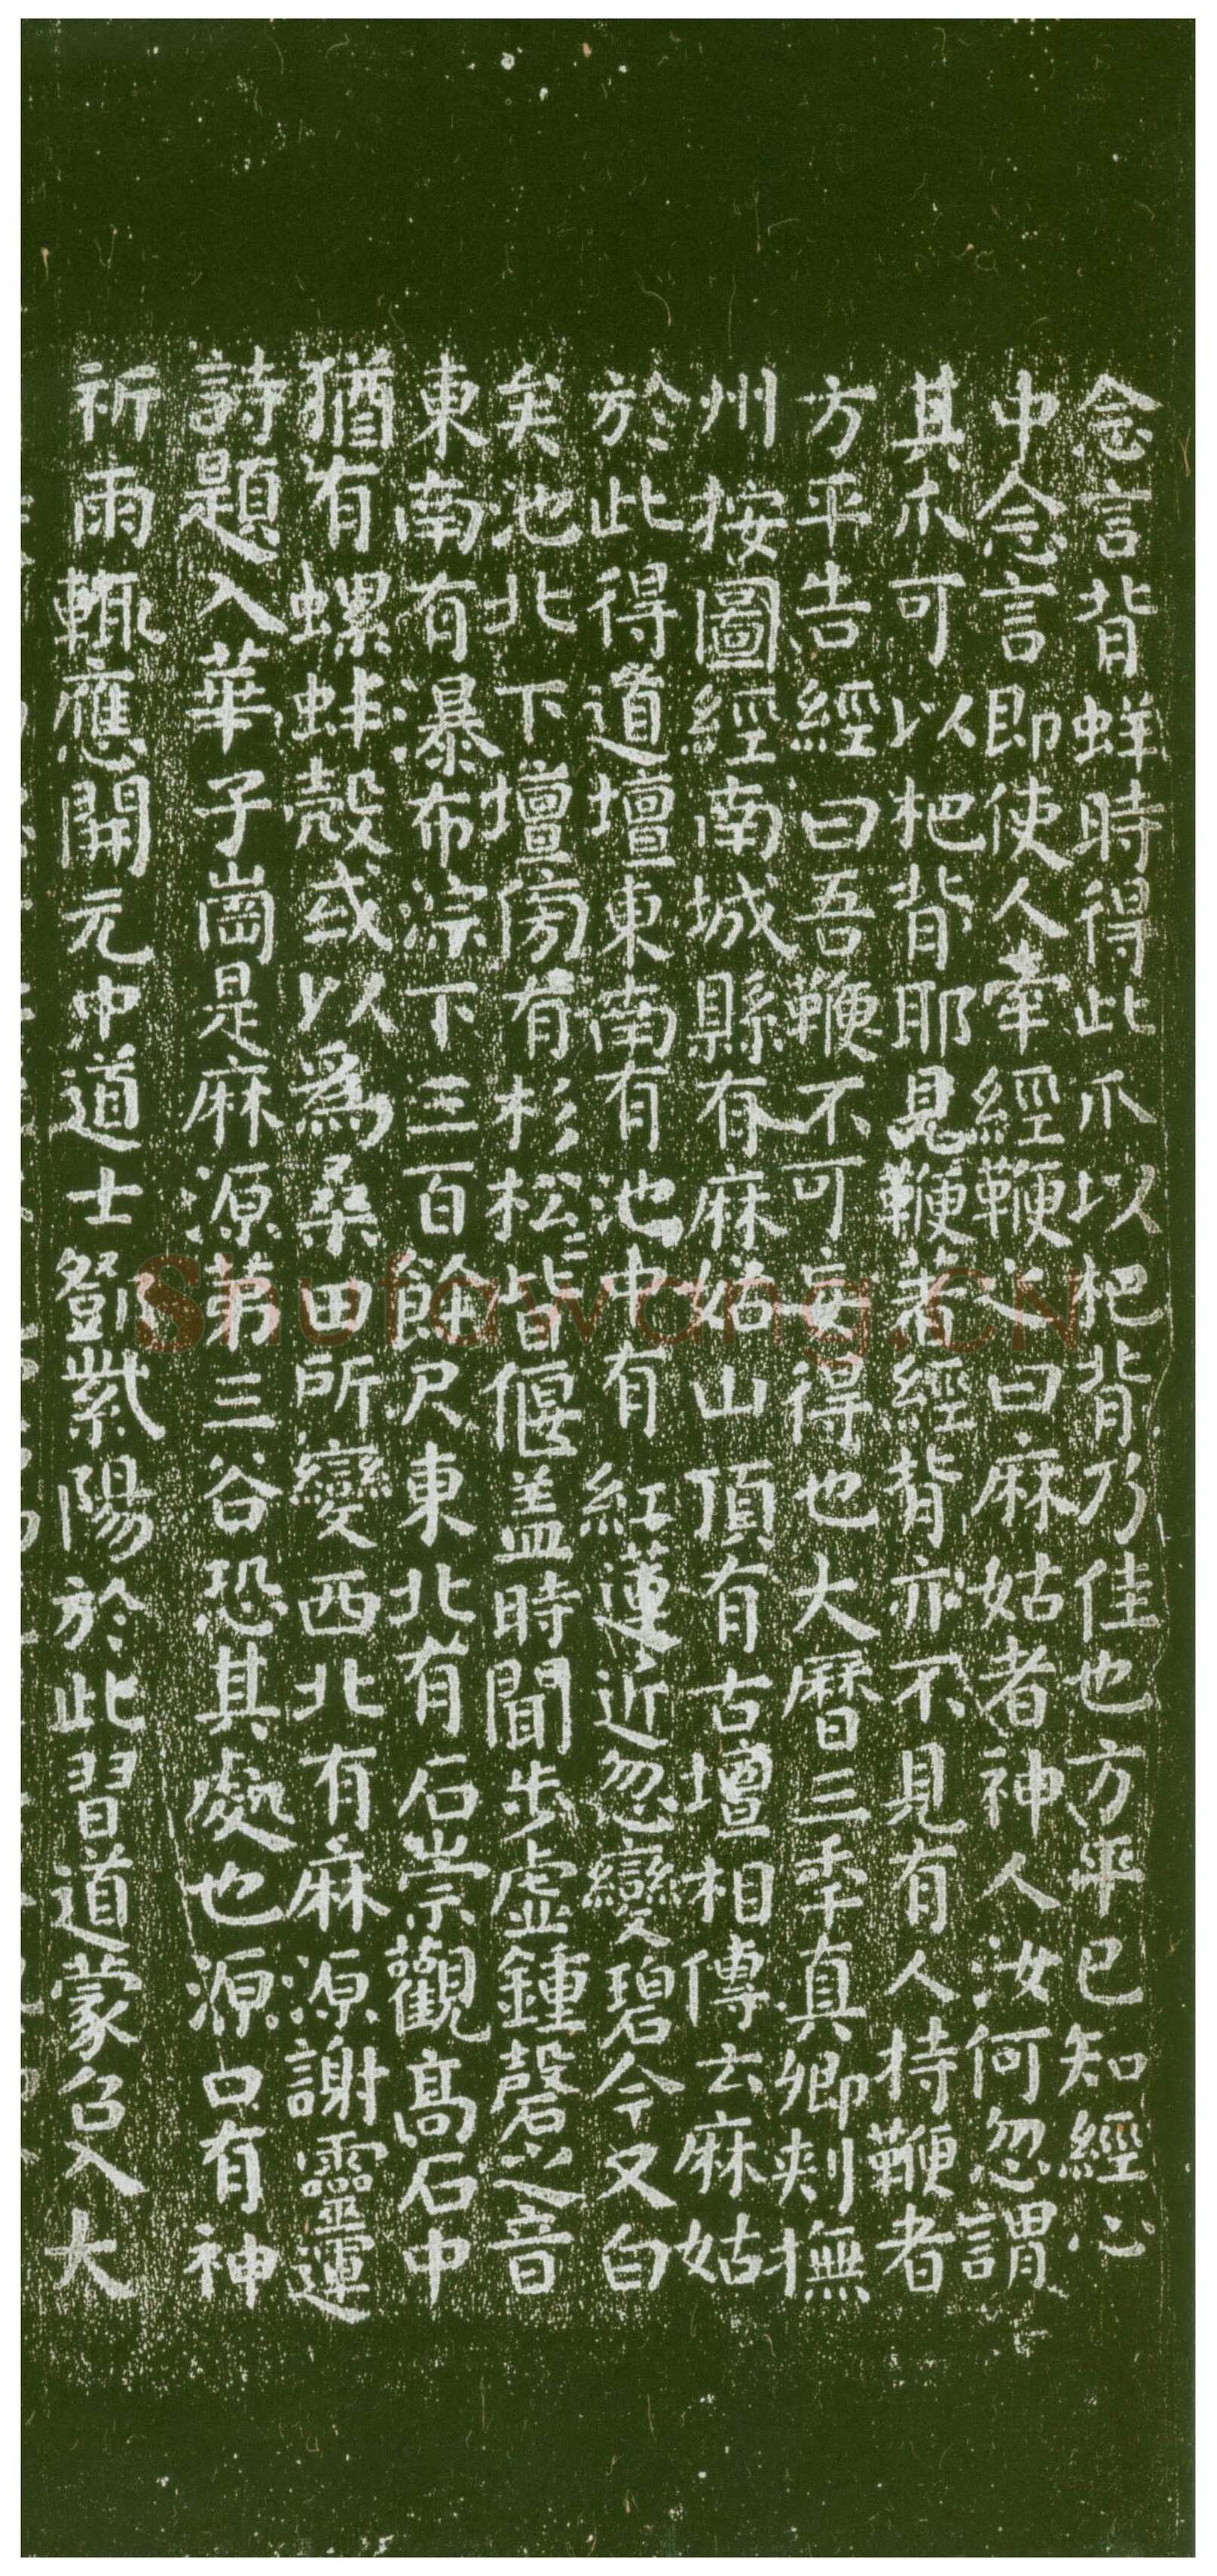 念言背蛘時得此爪以杷背乃佳也方平已知經心
中念言即使人牽經鞭之曰麻姑者神人汝何忽謂
其爪可以杷背耶見鞭著經背亦不見有人持鞭者
方平告經曰吾鞭不可妄得也大曆三年真卿刺撫
州按圖經南城縣有麻姑山頂有古壇相傳云麻姑
於此得道壇東南有池中有紅蓮近忽變碧今又白
矣池北下壇傍有杉松〻皆偃盖時聞步虛鍾磬之音
東南有暴布淙下三百餘尺東北有石崇觀高石中
猶有螺蚌殼或以為桑田所變西北有麻源謝靈運
詩題入華子崗是麻源第三谷恐其處也源口有神
祈雨輒應開元中道士鄧紫陽於此習道蒙召入大
Shufawang.CN